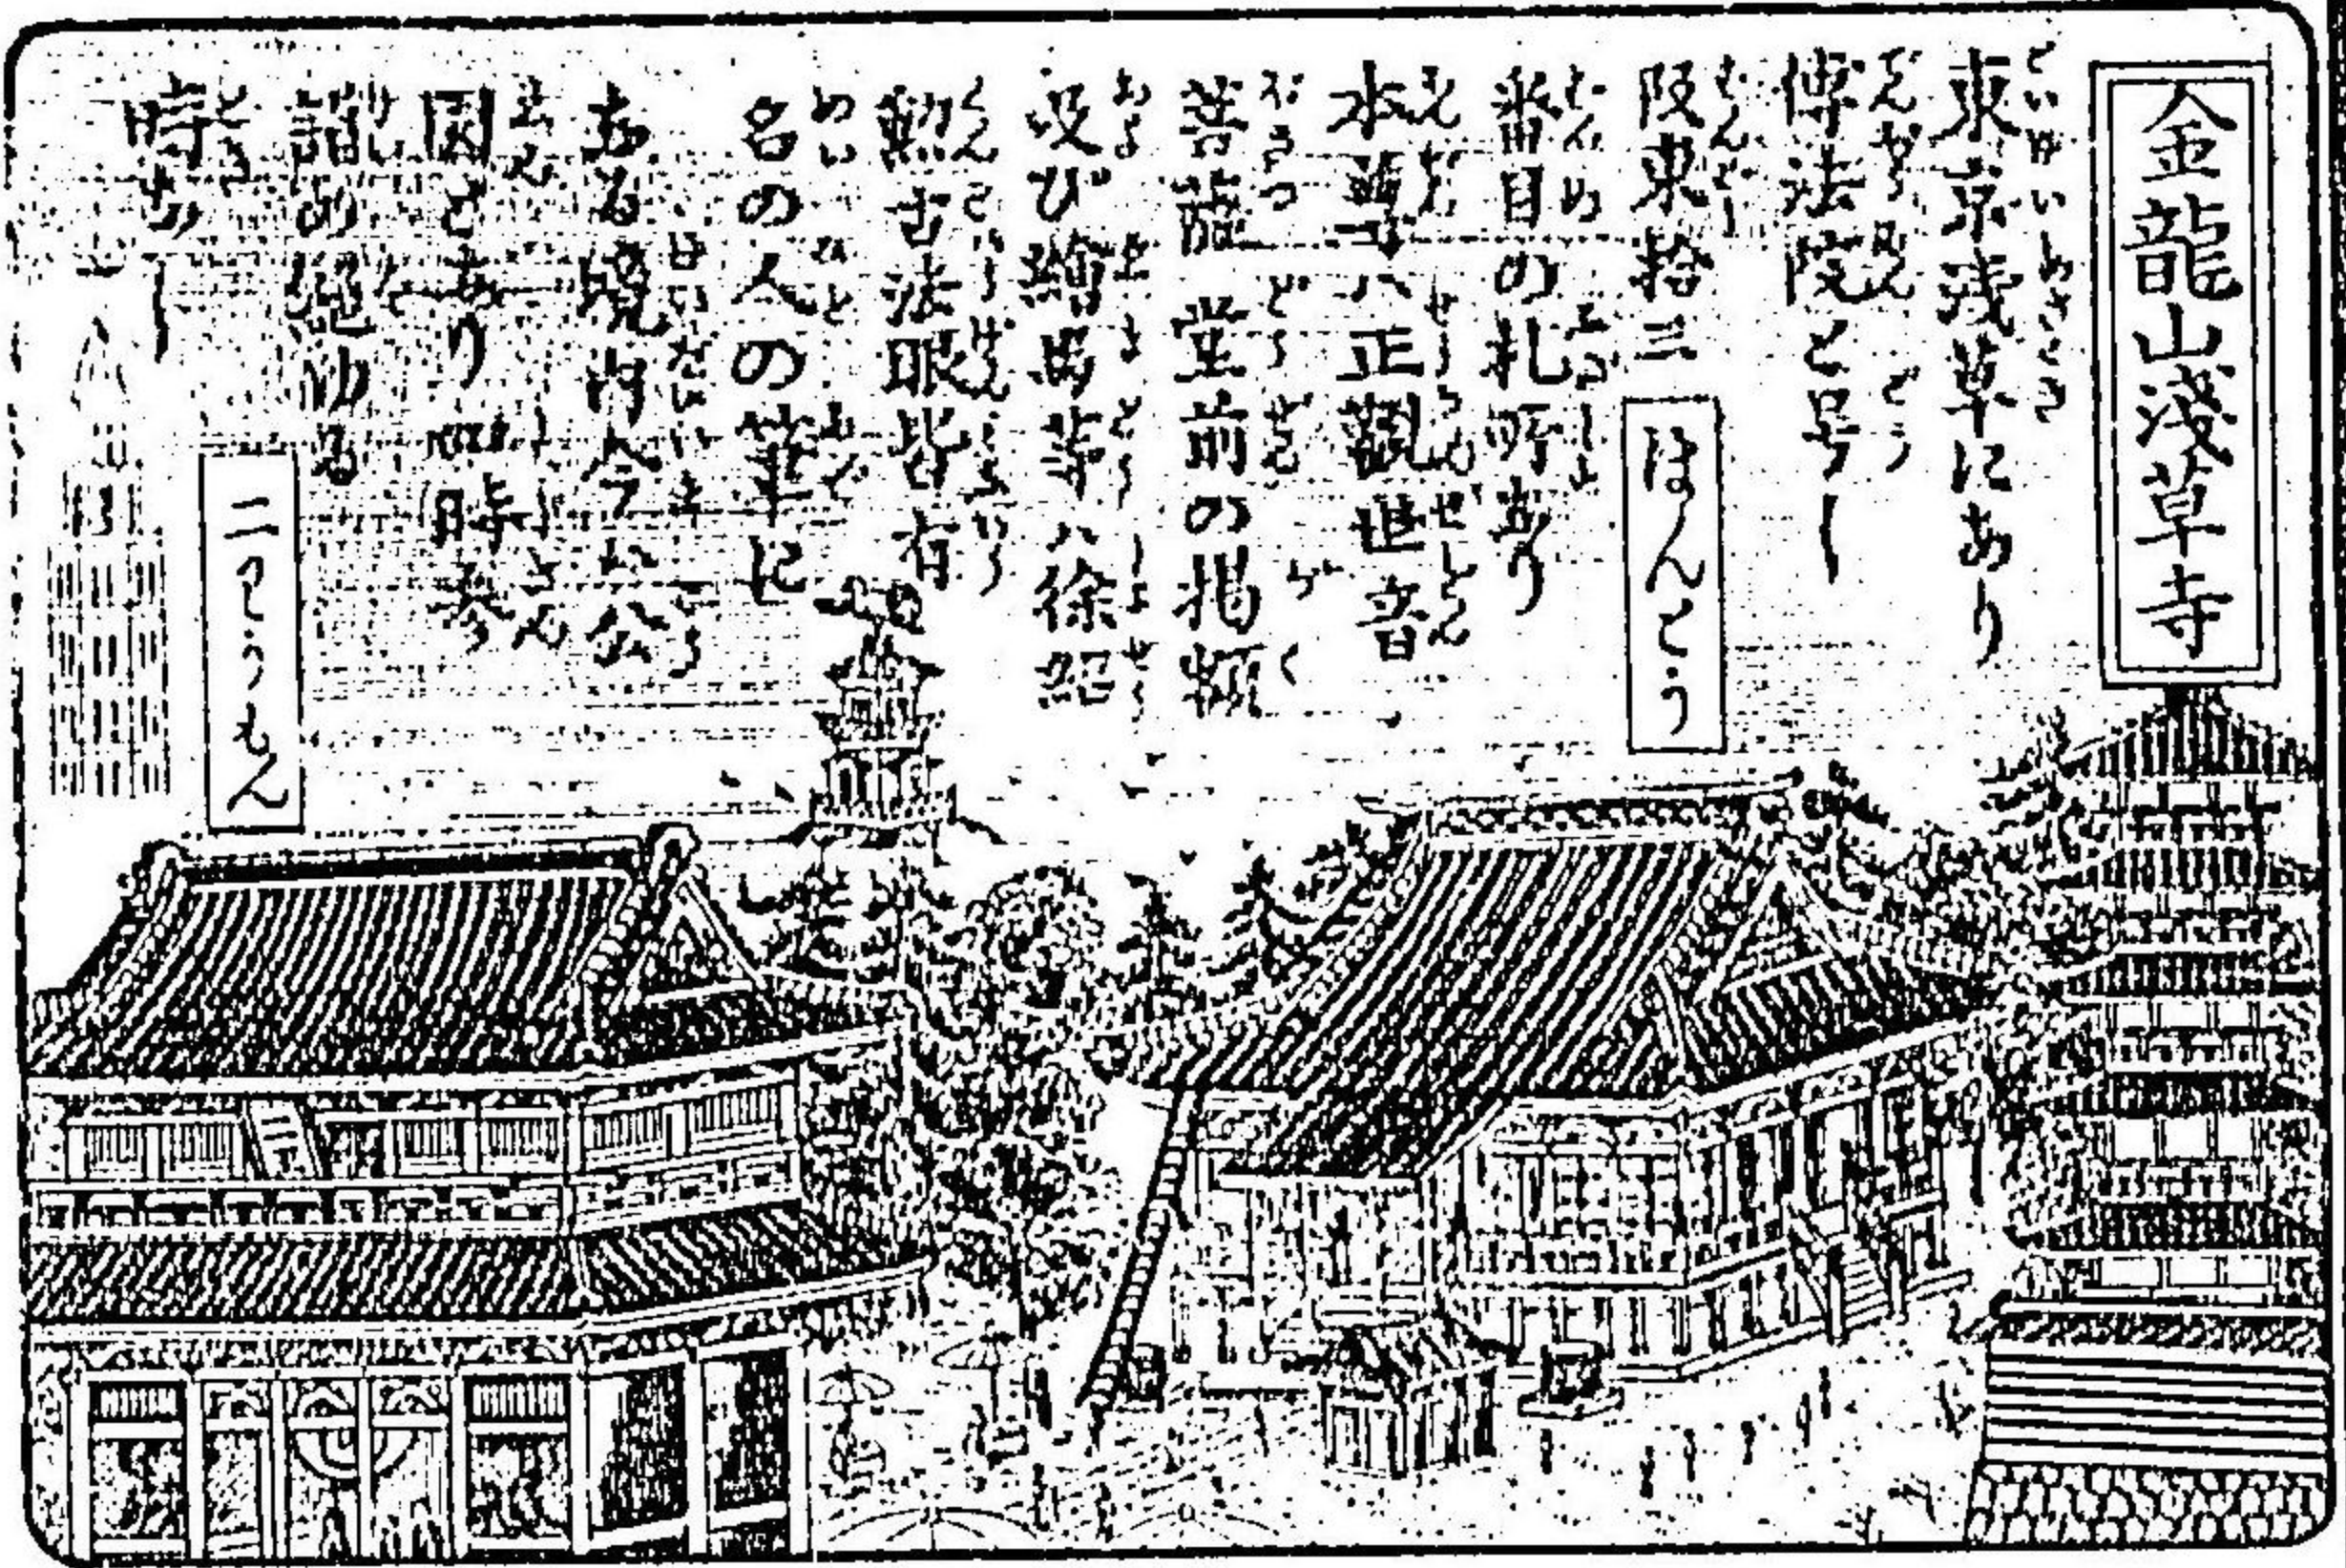 金龍山淺草寺
東京浅草にあり
傳法院と号し
阪東拾三
番目の札所あり
本尊ハ正觀世音
菩薩 堂前の掲額
及び繪馬等ハ徐紹
勲古法眼皆有
名の人の筆に
ある境内今ハ公
園となり四時参
詣の絶ゆる
時なし
ほんどう
二わうもん